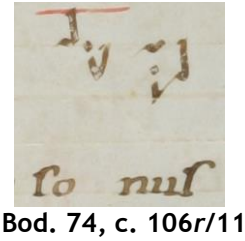 so nus
Bod. 74, c. 106r/11